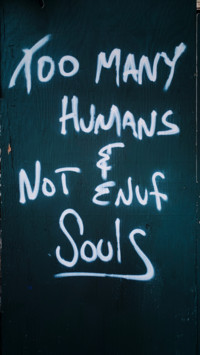 TOO MANY
HUMANS
&
NOT ENUF
SOULS